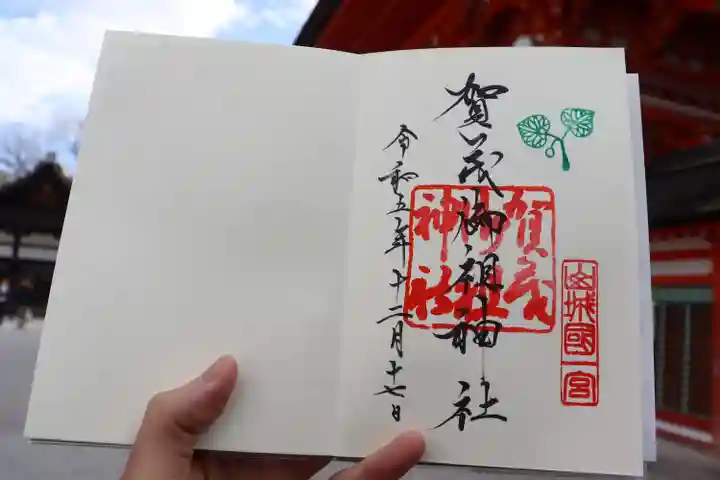 山城國一宮
賀茂御祖神社
賀茂
御祖
神社
令和五年十二月十七日